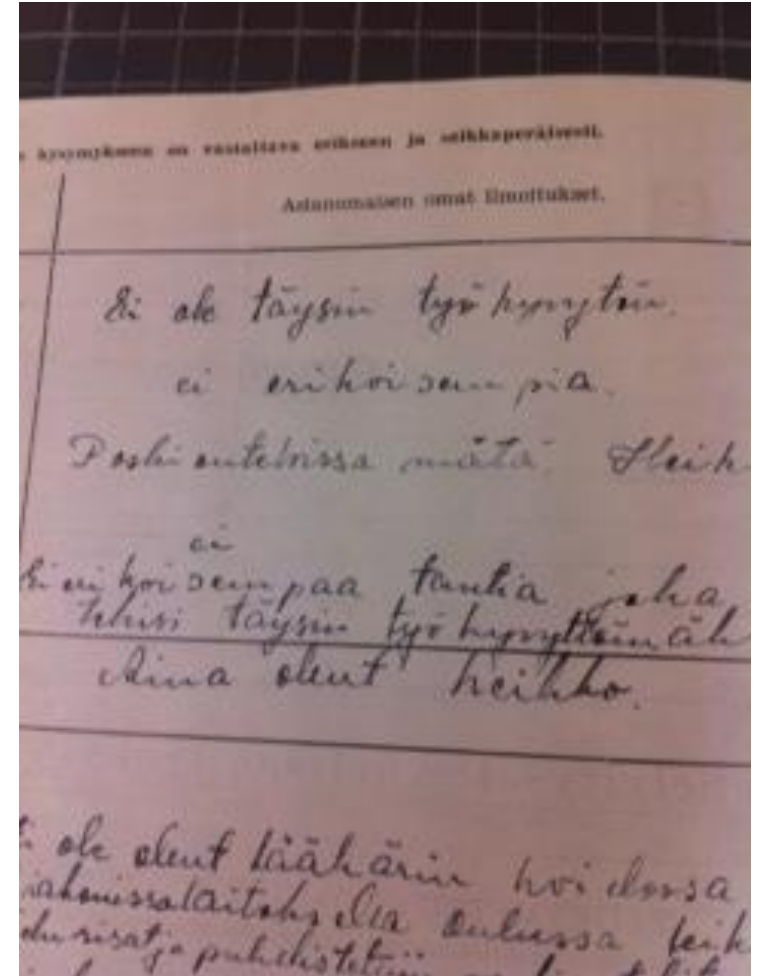 kysymykseen on vastattava erikseen ja seikkaperäisesti.
Asianomaisen omat ilmoitukset.
Ei ole täysin työkyvytöin.
ei erikoisempia.
Poskionteloissa mätä. Heik
ei
Ei erikoisempaa tautia joka
tekisi täysin työkyvyttömäk
Aina olent heikko.
ole olent lääkärin hoidossa
Oulussa leik
puhdistettiin